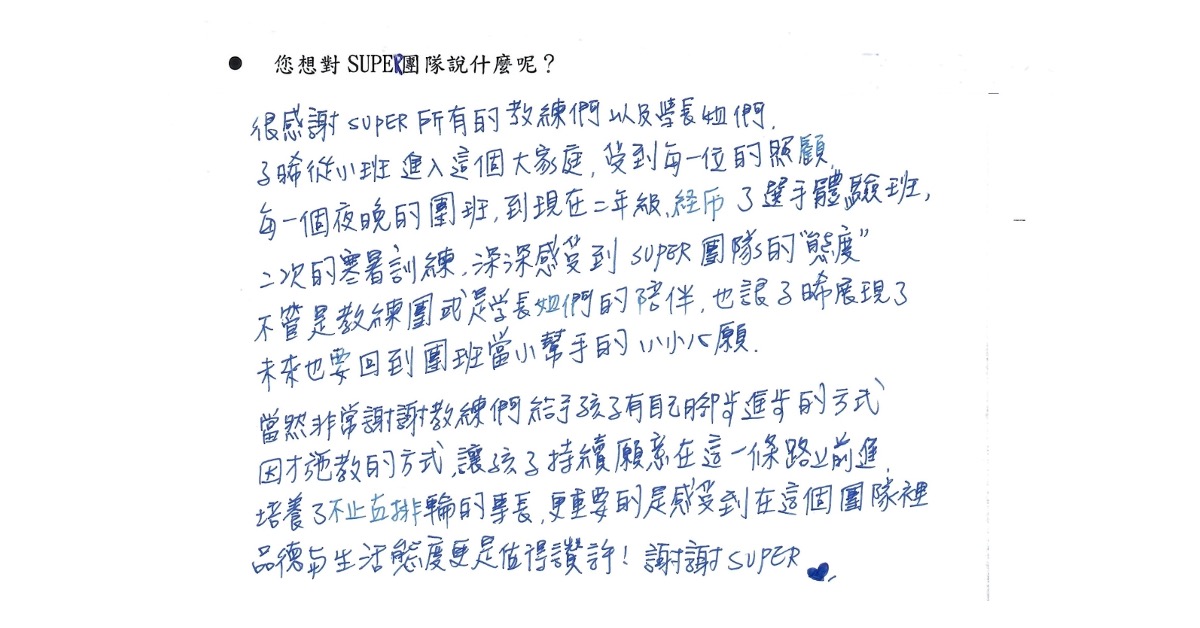 ● 您想對 SUPER團隊說什麼呢？
很感謝 SUPER 所有的教練們以及學長姐們.
子晞從小班進入這個大家庭, 受到每一位的照顧.
每一個夜晚的團班, 到現在二年級, 經歷了選手體驗班,
二次的寒暑訓練, 深深感受到 SUPER 團隊的"態度"
不管是教練團或是學長姐們的陪伴, 也讓子晞展現了
未來也要回到團班當小幫手的小小心願.
當然非常謝謝教練們給予孩子有自己腳步進步的方式
因才施教的方式, 讓孩子持續願意在這一條路上前進.
培養了不止直排輪的專長, 更重要的是感受到在這個團隊裡
品德與生活態度更是值得讚許! 謝謝SUPER